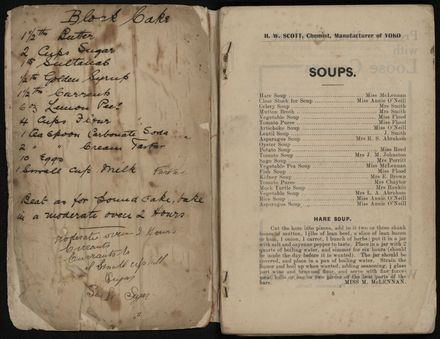 Block Cake
1 1/2 lb Butter
2 Cups Sugar
1 lb Sultanas
1/2 lb Golden Syrup
1 1/2 lb Currants
6 oz Lemon Peel
4 Cups Flour
1 teaspoon Carbonate Soda
2 " " Cream Tartar
10 Eggs
1 Small Cup Milk
Beat as for Pound Cake, bake
in a moderate oven 2 Hours
moderate oven 2 Hours
Currants
Currants
Small cup milk
Sugar
H. W. SCOTT, Chemist, Manufacturer of VOKO
SOUPS.
Hare Soup Miss McLennan
Clear Stock for Soup Miss Annie O'Neil
Celery Soup Mrs Smith
Mutton Broth Mrs Smith
Vegetable Soup Miss Flood
Tomato Puree Miss Flood
Artichoke Soup Miss O'Neil
Lentil Soup J. Smith
Asparagus Soup Mrs R. S. Abraham
Oyster Soup
Potato Soup Miss Reed
Tomato Soup Mrs J. M. Johnston
Sago Soup Mrs Porritt
Vegetable Pea Soup Miss McLennan
Fish Soup Miss Flood
Kidney Soup Mrs E. Brown
Tomato Puree Mrs Chaytor
Mock Turtle Soup Mrs Rankin
Vegetable Soup Mrs L. A. Abraham
Rice Soup Miss Annie O'Neil
Asparagus Soup Mrs Smith
HARE SOUP.
Cut the hare into pieces, add to it two or three shank
bones of mutton, 1/2lb of lean beef, a slice of lean bacon
or ham, 1 onion, 1 carrot, 1 bunch of herbs; put it in a jar
with salt and cayenne pepper to taste. Place in a jar with 2
quarts of boiling water, and simmer for six hours (should
be made the day before it is wanted). The jar should be
covered, and place in a pan of boiling water. Strain the
liquor and boil up when wanted, adding seasoning, 1 glass
port wine and browned flour, and serve with fine forcemeat
balls or one or two pieces of the best parts of the
hare. MISS M. McLENNAN.
5